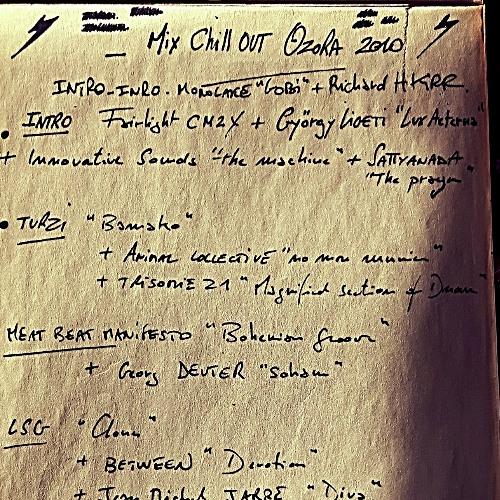 Mix Chill OUT OZORA 2010
INTRO-INRO. MONOLAKE "GOBI" + Richard H. KIRK.
• INTRO Fairlight CM2X + György LIGETI "Lux Aeterna"
+ Innovative Sounds "the machine" + SATTYANADA
"The prayer"
• TURZI "Bamako"
+ ANIMAL COLLECTIVE "no more runnin"
+ TRISOMIE 21 "Magnified section of Dream"
MEAT BEAT MANIFESTO "Bohemian groove"
+ Georg DEUTER "Soham"
LSG
+ BETWEEN "Devotion"
+ Jean Michel JARRE "Diva"